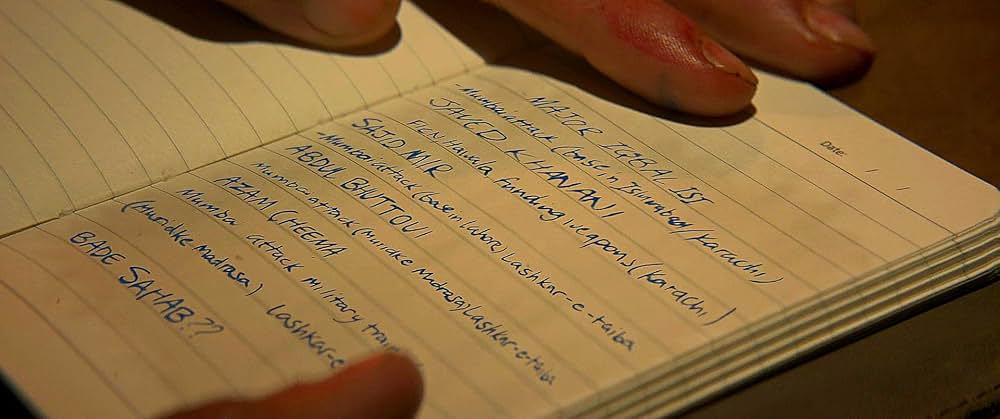 Date:
MAJOR IQBAL ISI
-Mumbai attack (base in Islamabad/Karachi)
JAVED KHANANI
FICN Hawala funding weapons (Karachi)
SAJID MIR
-Mumbai attack (base in lahore) Lashkar-e-taiba
ABDUL BHUTTOVI
Mumbai attack (Muridke Madrasa) Lashkar-e-taiba
AZAM CHEEMA
Mumbai attack Military
(Muridke madrasa) Lashkar-e
BADE SAHAB??